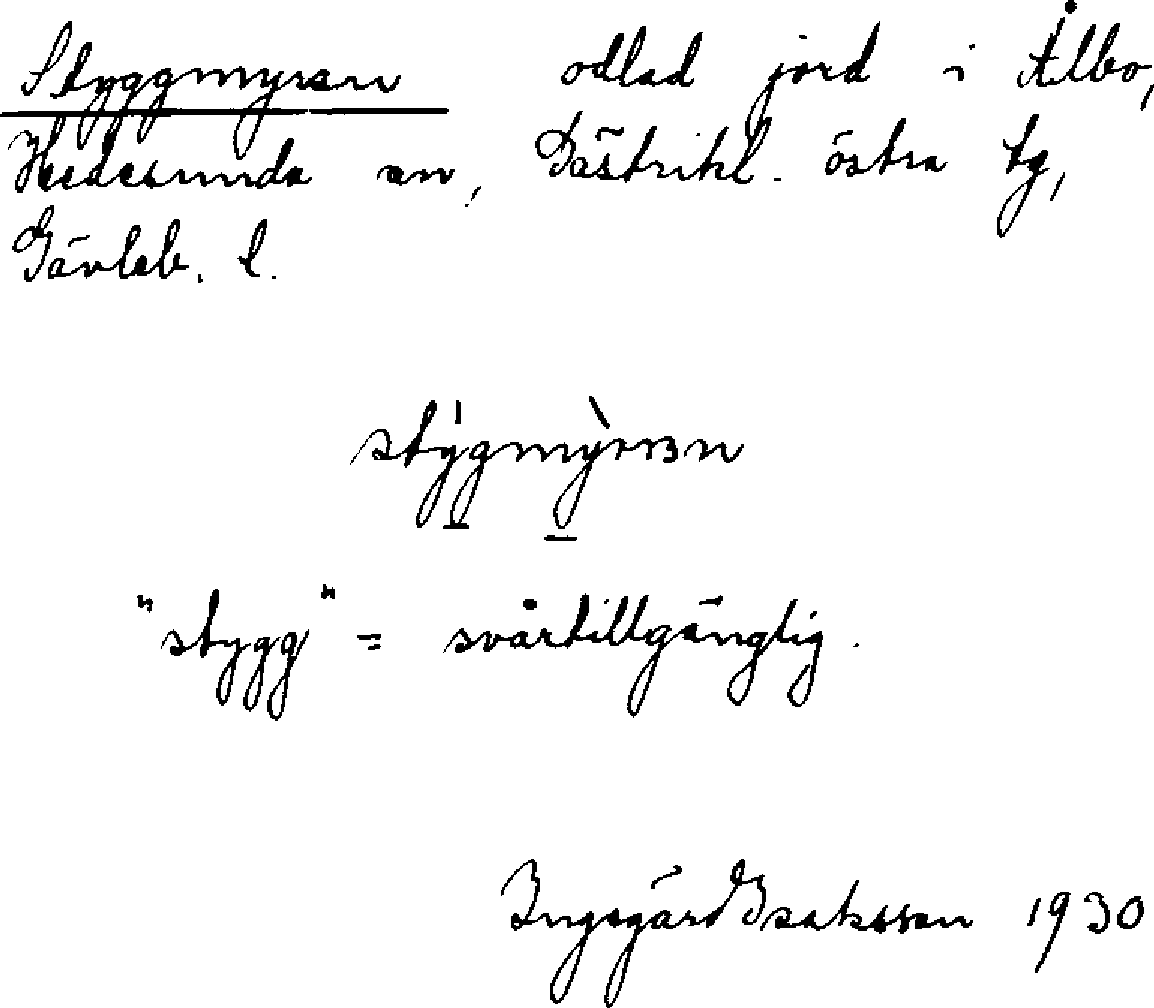 Styggmyran odlad jord i Ålbo,
Hedesunda sn, Gästrikl. östra tg,
Gävleb. l.
stýgmỳrrən
"stygg" = svårtillgänglig.
Ingegärd Isaksson 1930